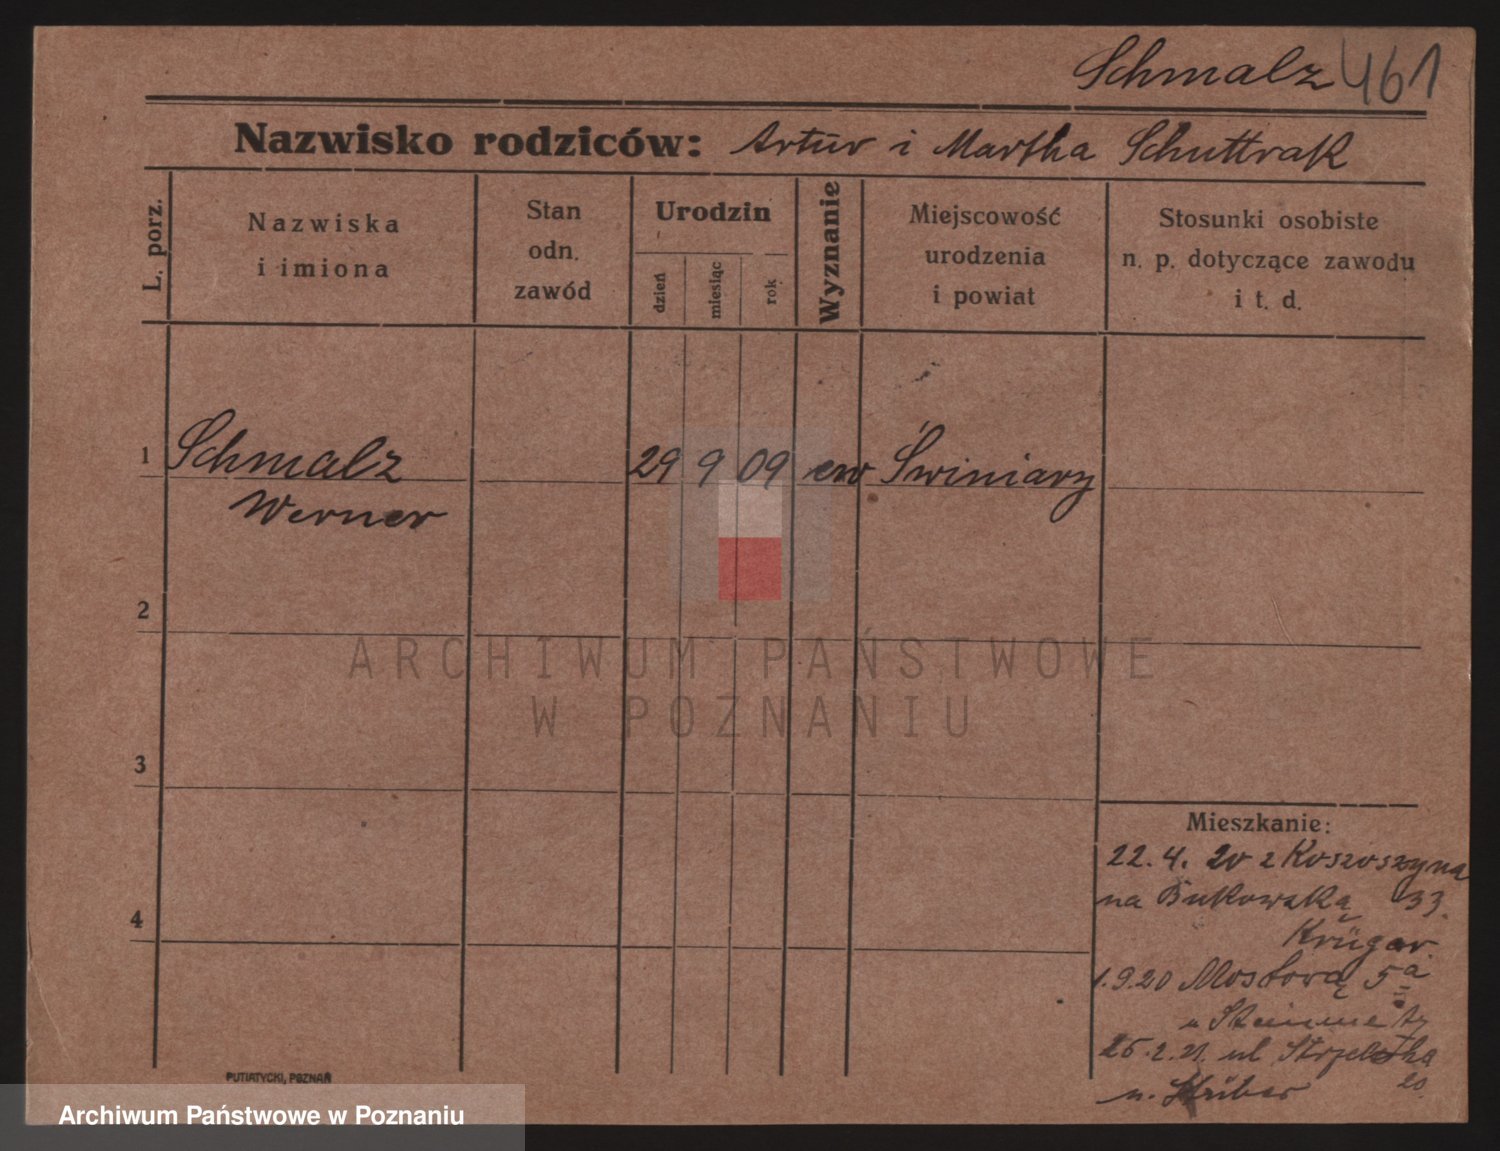 Schmalz 461
Nazwisko rodziców: Artur i Martha Schuttrak
L. porz.
Nazwiska
i imiona
Stan
odn.
zawód
Urodzin
dzień
miesiąc
rok
Wyznanie
Miejscowość
urodzenia
i powiat
Stosunki osobiste
n. p. dotyczące zawodu
i t. d.
1 Schmalz 29 9 09 ew Świniary
Werner
2
3
4
Mieszkanie:
22.4. 20 z
na Bukowską 33.
Krüger.
1.9.20 Mostową 5a
u
25.2.21. ul Strzelecka
20.
u. Stüber
PUTIATYCKI, POZNAŃ
ARCHIWUM PAŃSTWOWE
W POZNANIU
Archiwum Państwowe w Poznaniu